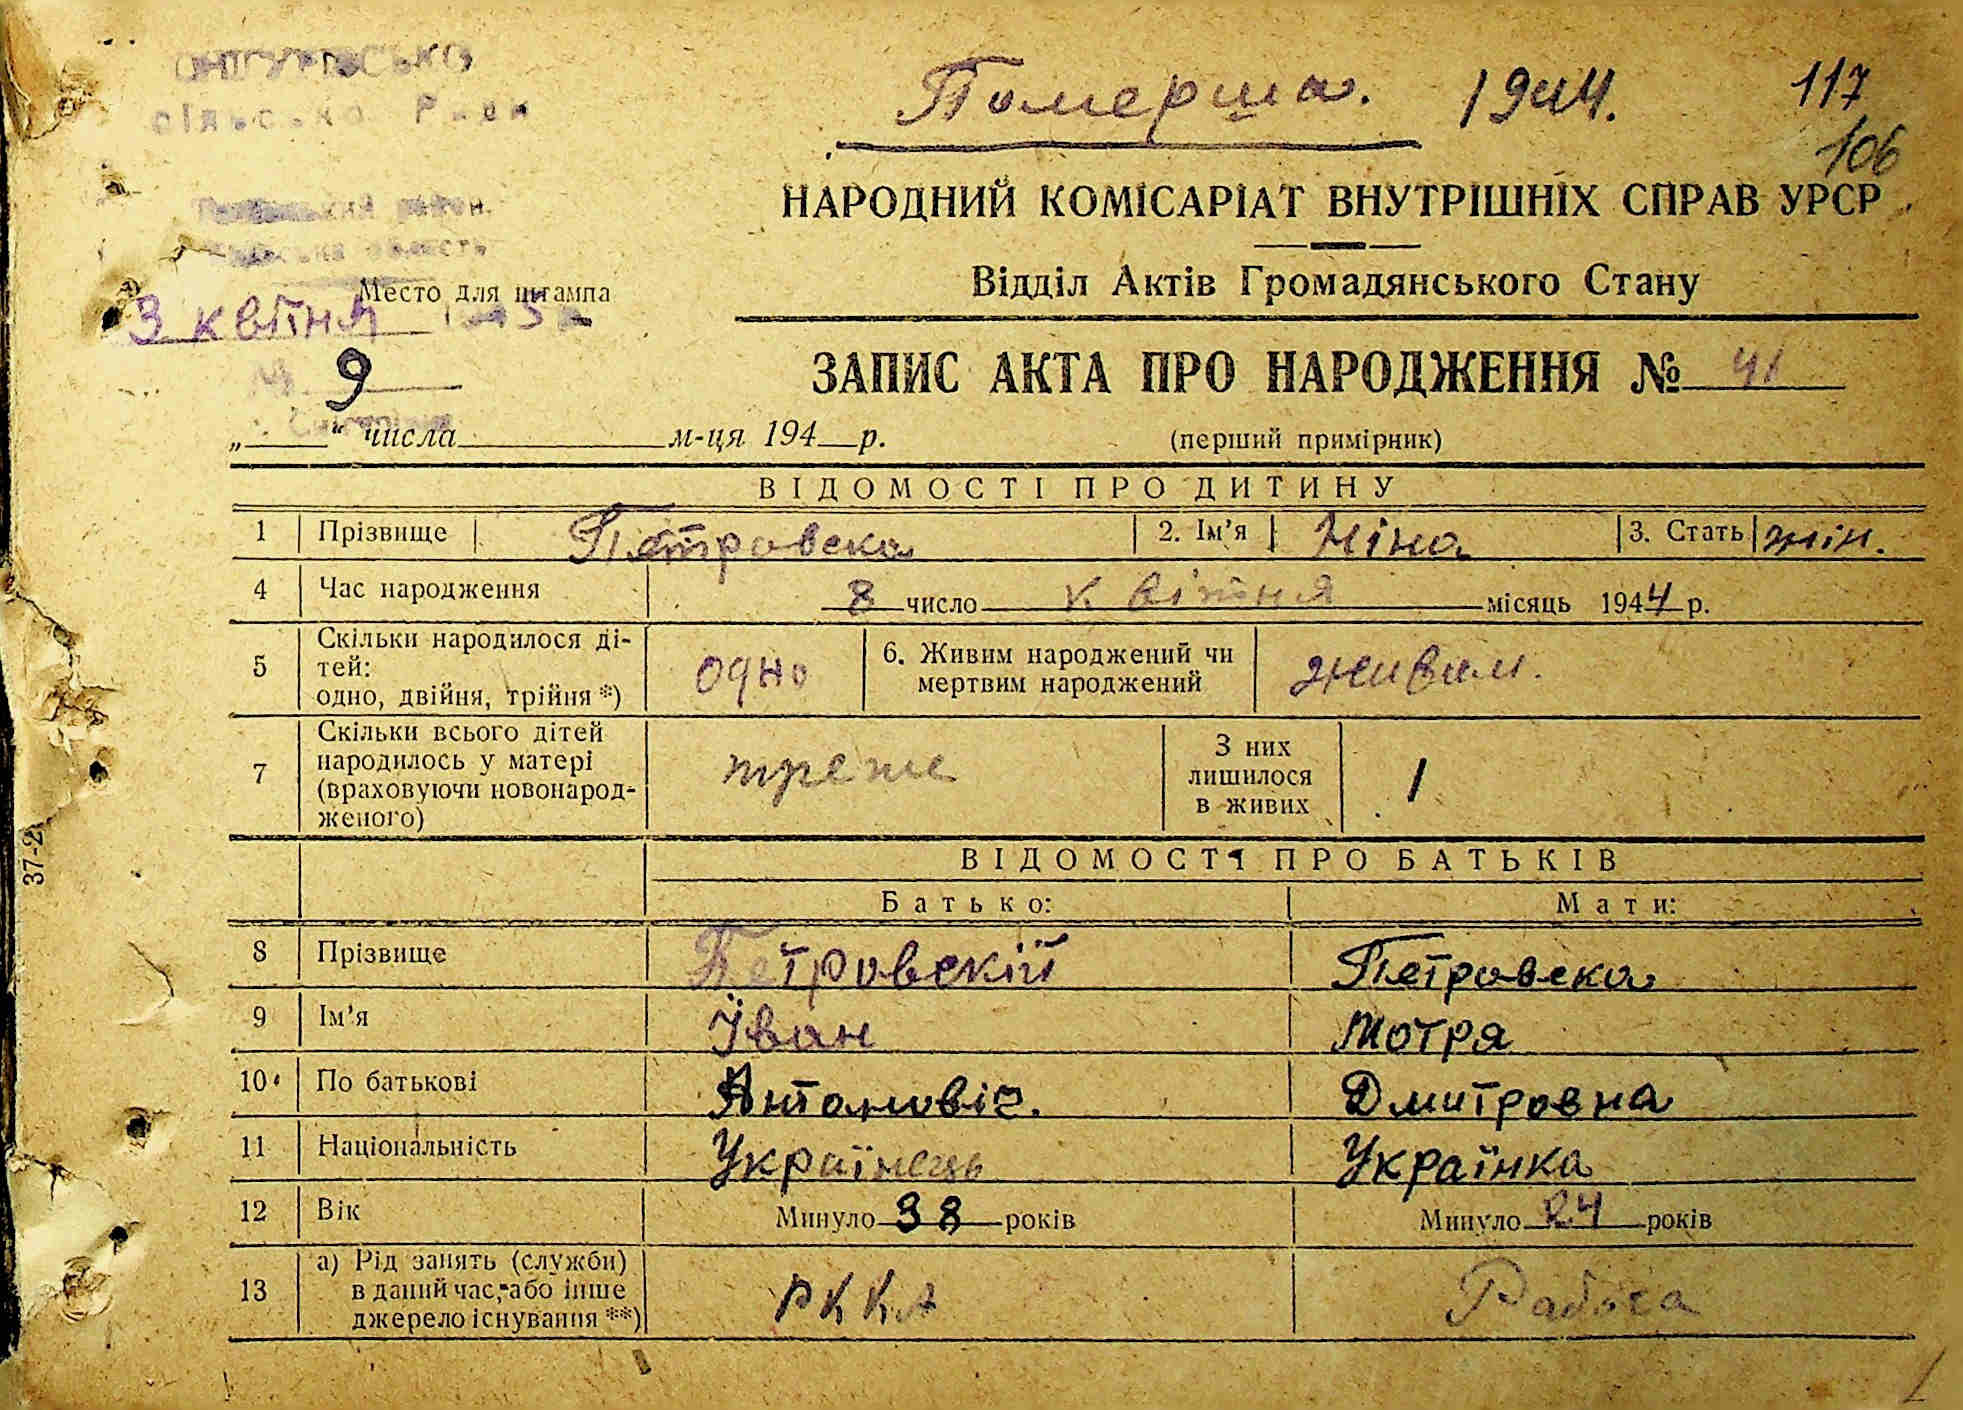 сільська Рада
район
область
Померша. 1944.
117
106
НАРОДНИЙ КОМІСАРІАТ ВНУТРІШНІХ СПРАВ УРСР
Відділ Актів Громадянського Стану
Место для штампа
3 квітня
№ 9
ЗАПИС АКТА ПРО НАРОДЖЕННЯ № 41
„ “ числа м-ця 194 р.
(перший примірник)
ВІДОМОСТІ ПРО ДИТИНУ
1 Прізвище Петровска 2. Ім’я Ніна 3. Стать жін.
4 Час народження 8 число квітня місяць 1944 р.
5 Скільки народилося ді-
тей:
одно, двійня, трійня *) одно 6. Живим народжений чи
мертвим народжений живим.
7 Скільки всього дітей
народилось у матері
(враховуючи новонарод-
женого) третє З них
лишилося
в живих 1
37-2
ВІДОМОСТІ ПРО БАТЬКІВ
Батько: Мати:
8 Прізвище Петровскій Петровска
9 Ім’я Їван Мотря
10 По батькові Антоновіч. Дмитровна
11 Національність Українець Українка
12 Вік Минуло 38 років Минуло 24 років
13 а) Рід занять (служби)
в даний час, або інше
джерело існування **) РККА